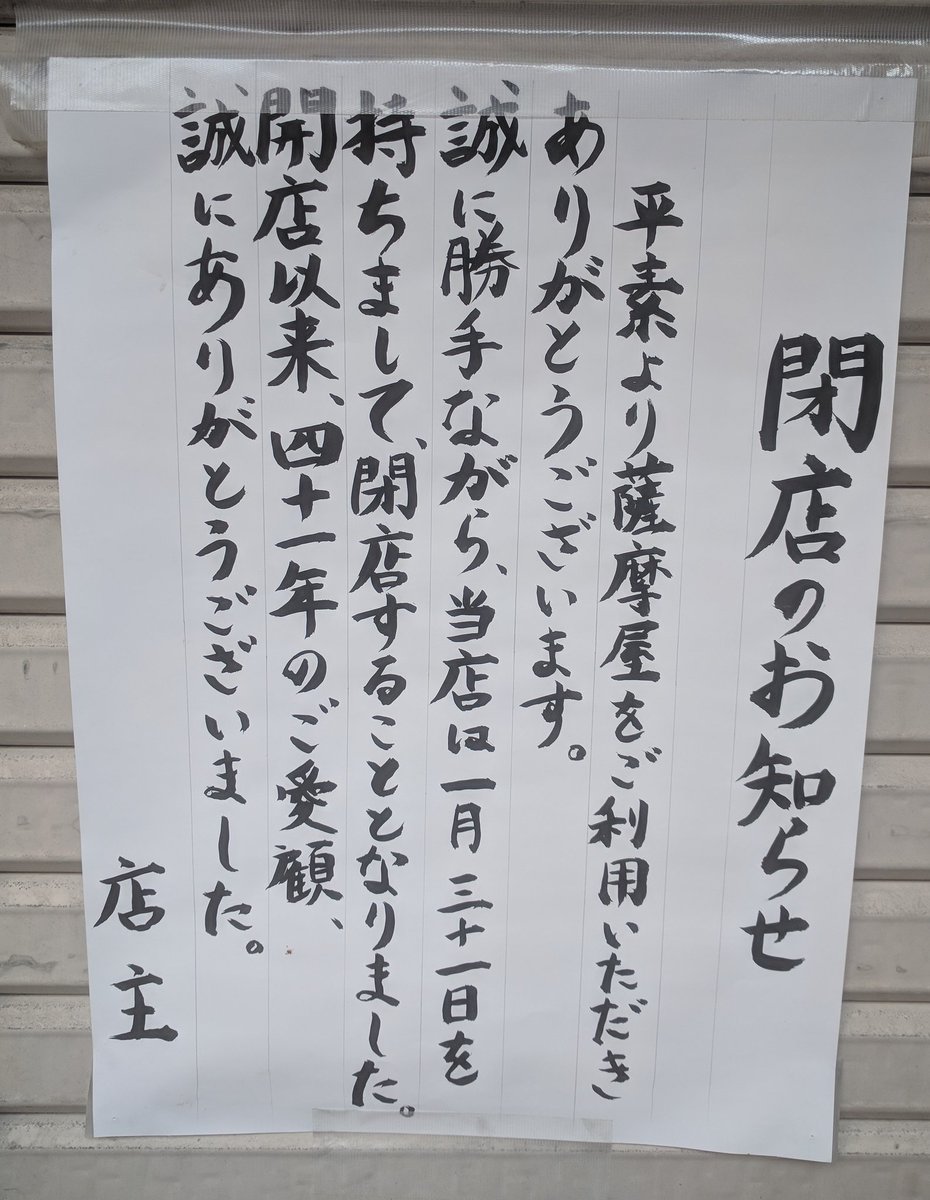 閉店のお知らせ
平素より薩摩屋をご利用いただき
ありがとうございます。
誠に勝手ながら、当店は一月三十一日を
持ちまして、閉店することとなりました。
開店以来、四十一年のご愛顧、
誠にありがとうございました。
店主